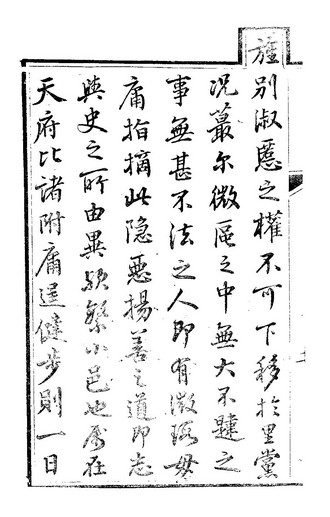 旌別淑慝之權不可下移於里黨
況蕞尔微區之中無大不韙之
事無甚不法之人即有微瑕毋
庸指摘此隐惡揚善之道即志
與史之所由異歟繁小邑也属在
天府比諸附庸逞健步則一日